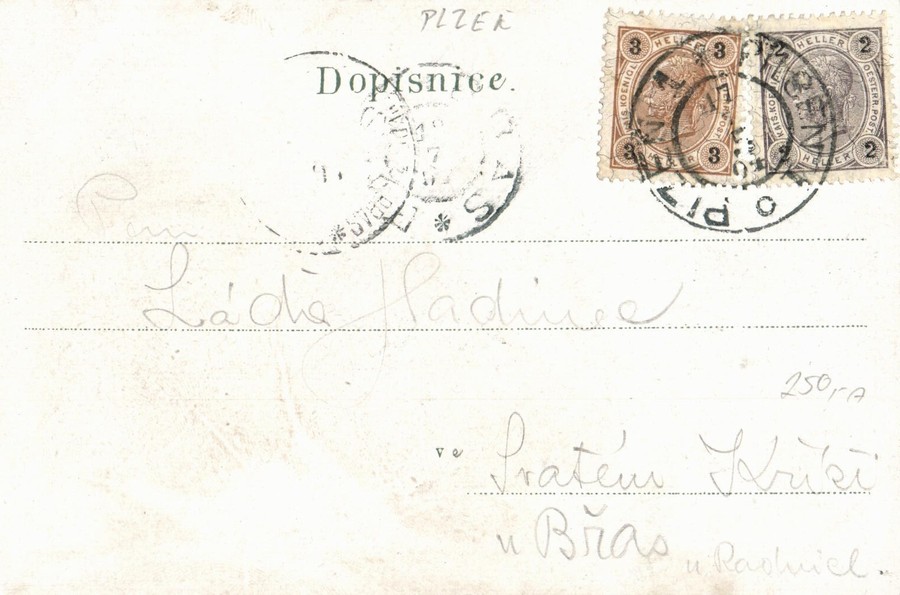 PLZEŇ
Dopisnice.
3 HELLER 3
KAIS. KOENIGL.
3 HELLER 3
2 HELLER 2
KAIS. KOENIGL. OESTERR. POST
2 HELLER 2
PILSEN
PLZEŇ
Pan
Láďa Hadinec
250,-
ve Svatém Kříži
u Břas u Radnic.